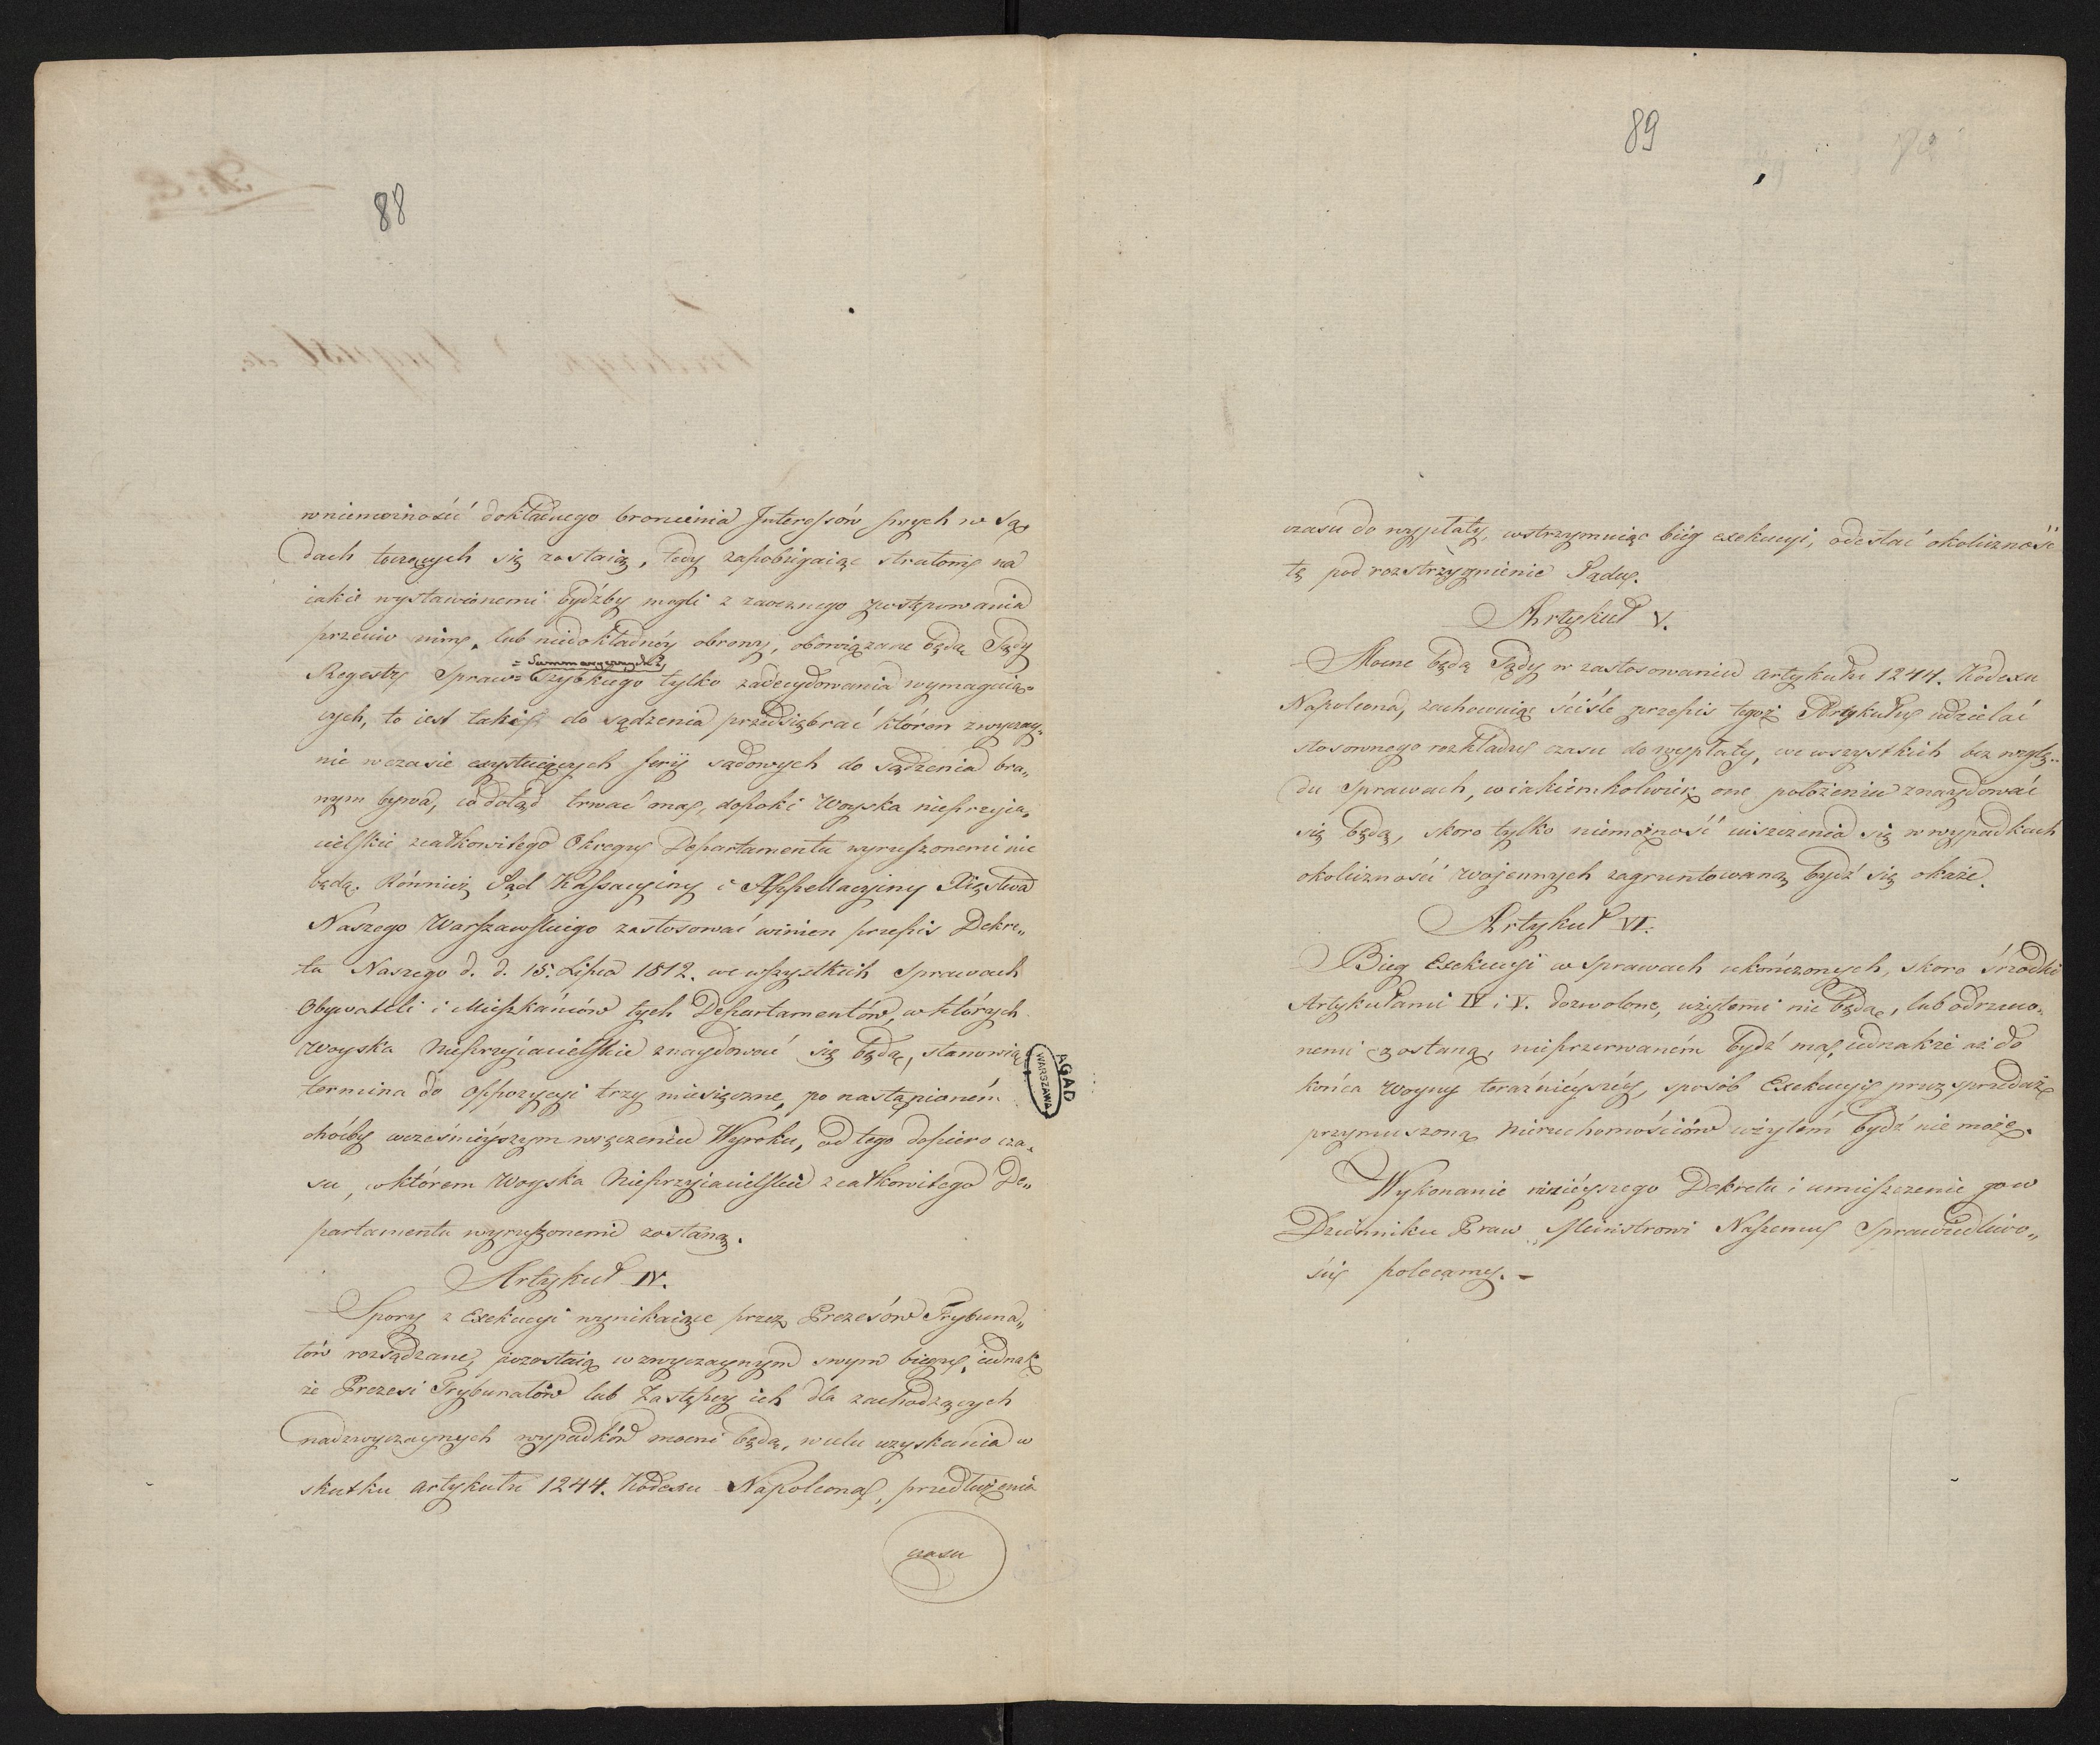 88
w niemożność dokładnego bronienia Interessów swych w Są„
dach toczących się zostaią, tedy zapobiegaiąc stratom na
iakie wystawionemi bydźby mogli z zaocznego postępowania
przeciw nim, lub niedokładnéy obrony, obowiązane będą Sądy
= Summarycznych
Regestry Spraw= Szybkiego tylko zadecydowania wymagaią=
cych, to iest takiż do sądzenia przedsiębrać któren zwyczay=
nie w czasie exystuiących feryi sądowych do sądzenia bra„
nym bywa, co dotąd trwać ma, dopoki Woyska nieprzyia„
cielskie z całkowitego Okręgu Departamentu wyruszonemi nie
będą. Również Sąd Kassacyiny i Appellacyiny Xięstwa
Naszego Warszawskiego zastosować winien przepis Dekre„
tu Naszego d. d. 15. Lipca 1812. we wszystkich Sprawach
Obywateli i Mieszkańców tych Departamentów, w których
Woyska Nieprzyiacielskie znaydować się będą, stanowiąc
termina do Oppozycyi trzy miesięczne, po nastąpioném
choćby wcześniéyszym wręczeniu Wyroku, od tego dopiero cza„
su, w którem Woyska Nieprzyiacielskie z całkowitego De„
partamentu wyruszonemi zostaną.
Artykuł IV.
Spory z Exekucyi wynikaiące przez Prezesów Trybuna„
łów rozsądzane, pozostaią w zwyczaynym swym biegu, iednak
że Prezesi Trybunałów lub Zastępcy ich dla zachodzących
nadzwyczaynych wypadków mocni będą, w celu uzyskania w
skutku artykułu 1244. Kodexu Napoleona, przedłużenia
czasu
AGAD
WARSZAWA
89
czasu do wypłaty, wstrzymuiąc bieg exekucyi, odesłać okoliczność
tę pod rozstrzygnienie Sądu.
Artykuł V.
Mocne będą Sądy w zastosowaniu artykułu 1244. Kodexu
Napoleona, zachowuiąc ściśle przepis tegoż Artykułu udzielać
stosownego rozkładu czasu do wypłaty, we wszystkich bez wzglę„
du Sprawach, w iakiémkolwiek one położeniu znaydować
się będą, skoro tylko niemożność uiszczenia się w wypadkach
okoliczności wojennych zagruntowaną bydź się okaże.
Artykuł VI.
Bieg Exekucyi w Sprawach ukończonych, skoro śrzodki
Artykułami IV i V. dozwolone, użytemi nie będą, lub odrzuco„
nemi zostaną, nieprzerwaném bydź ma, iednakże aż do
końca Woyny teraźniéyszéy, sposób Exekucyi przez sprzedaż
przymuszoną Nieruchomościów użytém bydź nie może.
Wykonanie niniéyszego Dekretu i umieszczenie go w
Dzienniku Praw, Ministrowi Naszemu Sprawiedliwo„
ści polecamy. –